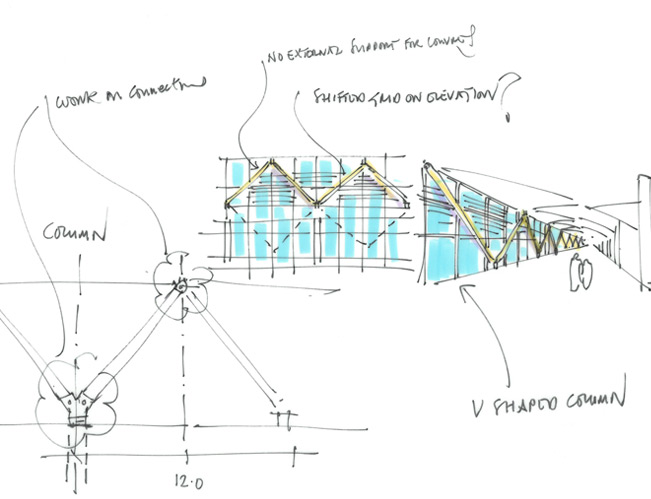 NO EXTERNAL SUPPORT FOR
WORK ON CONNECTIONS
SHIFTED GRID ON ELEVATION?
COLUMN
V SHAPED COLUMN
12.0